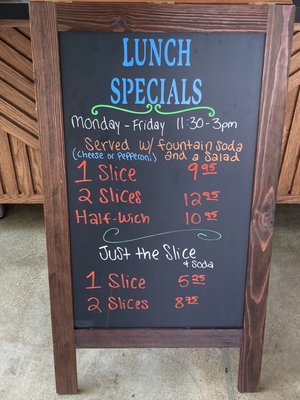 LUNCH
SPECIALS
Monday-Friday 11:30-3pm
Served w/ fountain soda
(cheese or pepperoni) and a Salad
1 Slice 9.95
2 Slices 12.95
Half-Wich 10.95
Just the Slice
& Soda
1 Slice 5.25
2 Slices 8.25